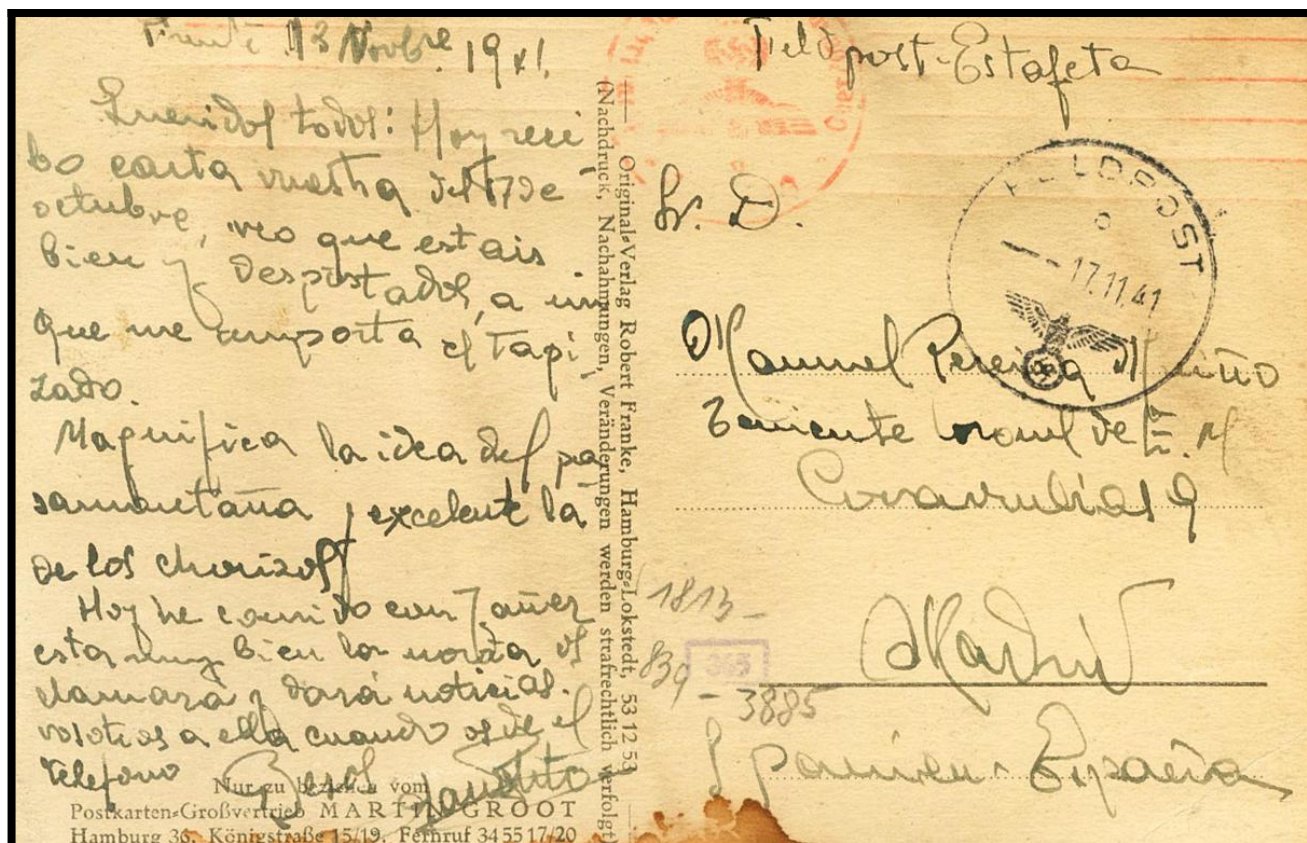 13 Novbre 1941.
Queridos todos: Hoy reci
bo carta vuestra del 17 de
octubre, veo que estais
bien y despistados, a mi
que me importa el tapi
zado.
Magnifica la idea del pa
samontaña y excelente la
de los chorizos
Hoy he comido con
esta muy bien la novia os
llamará y dará noticias.
vosotros a ella cuando os de el
telefono
Nur zu beziehen vom
Postkarten-Großvertrieb MARTIN GROOT
Hamburg 36, Königstraße 15/19, Fernruf 34 55 17/20
Original-Verlag Robert Franke, Hamburg-Lokstedt, 53 12 53
(Nachdruck, Nachahmungen, Veränderungen werden strafrechtlich verfolgt)
Feldpost-Estafeta
FELDPOST
17.11.41
Sr. D.
Manuel Pereira
Teniente Coronel de E. M
Covarrubias 9
Madrid
Spanien - España
1813-
839
363
- 3885